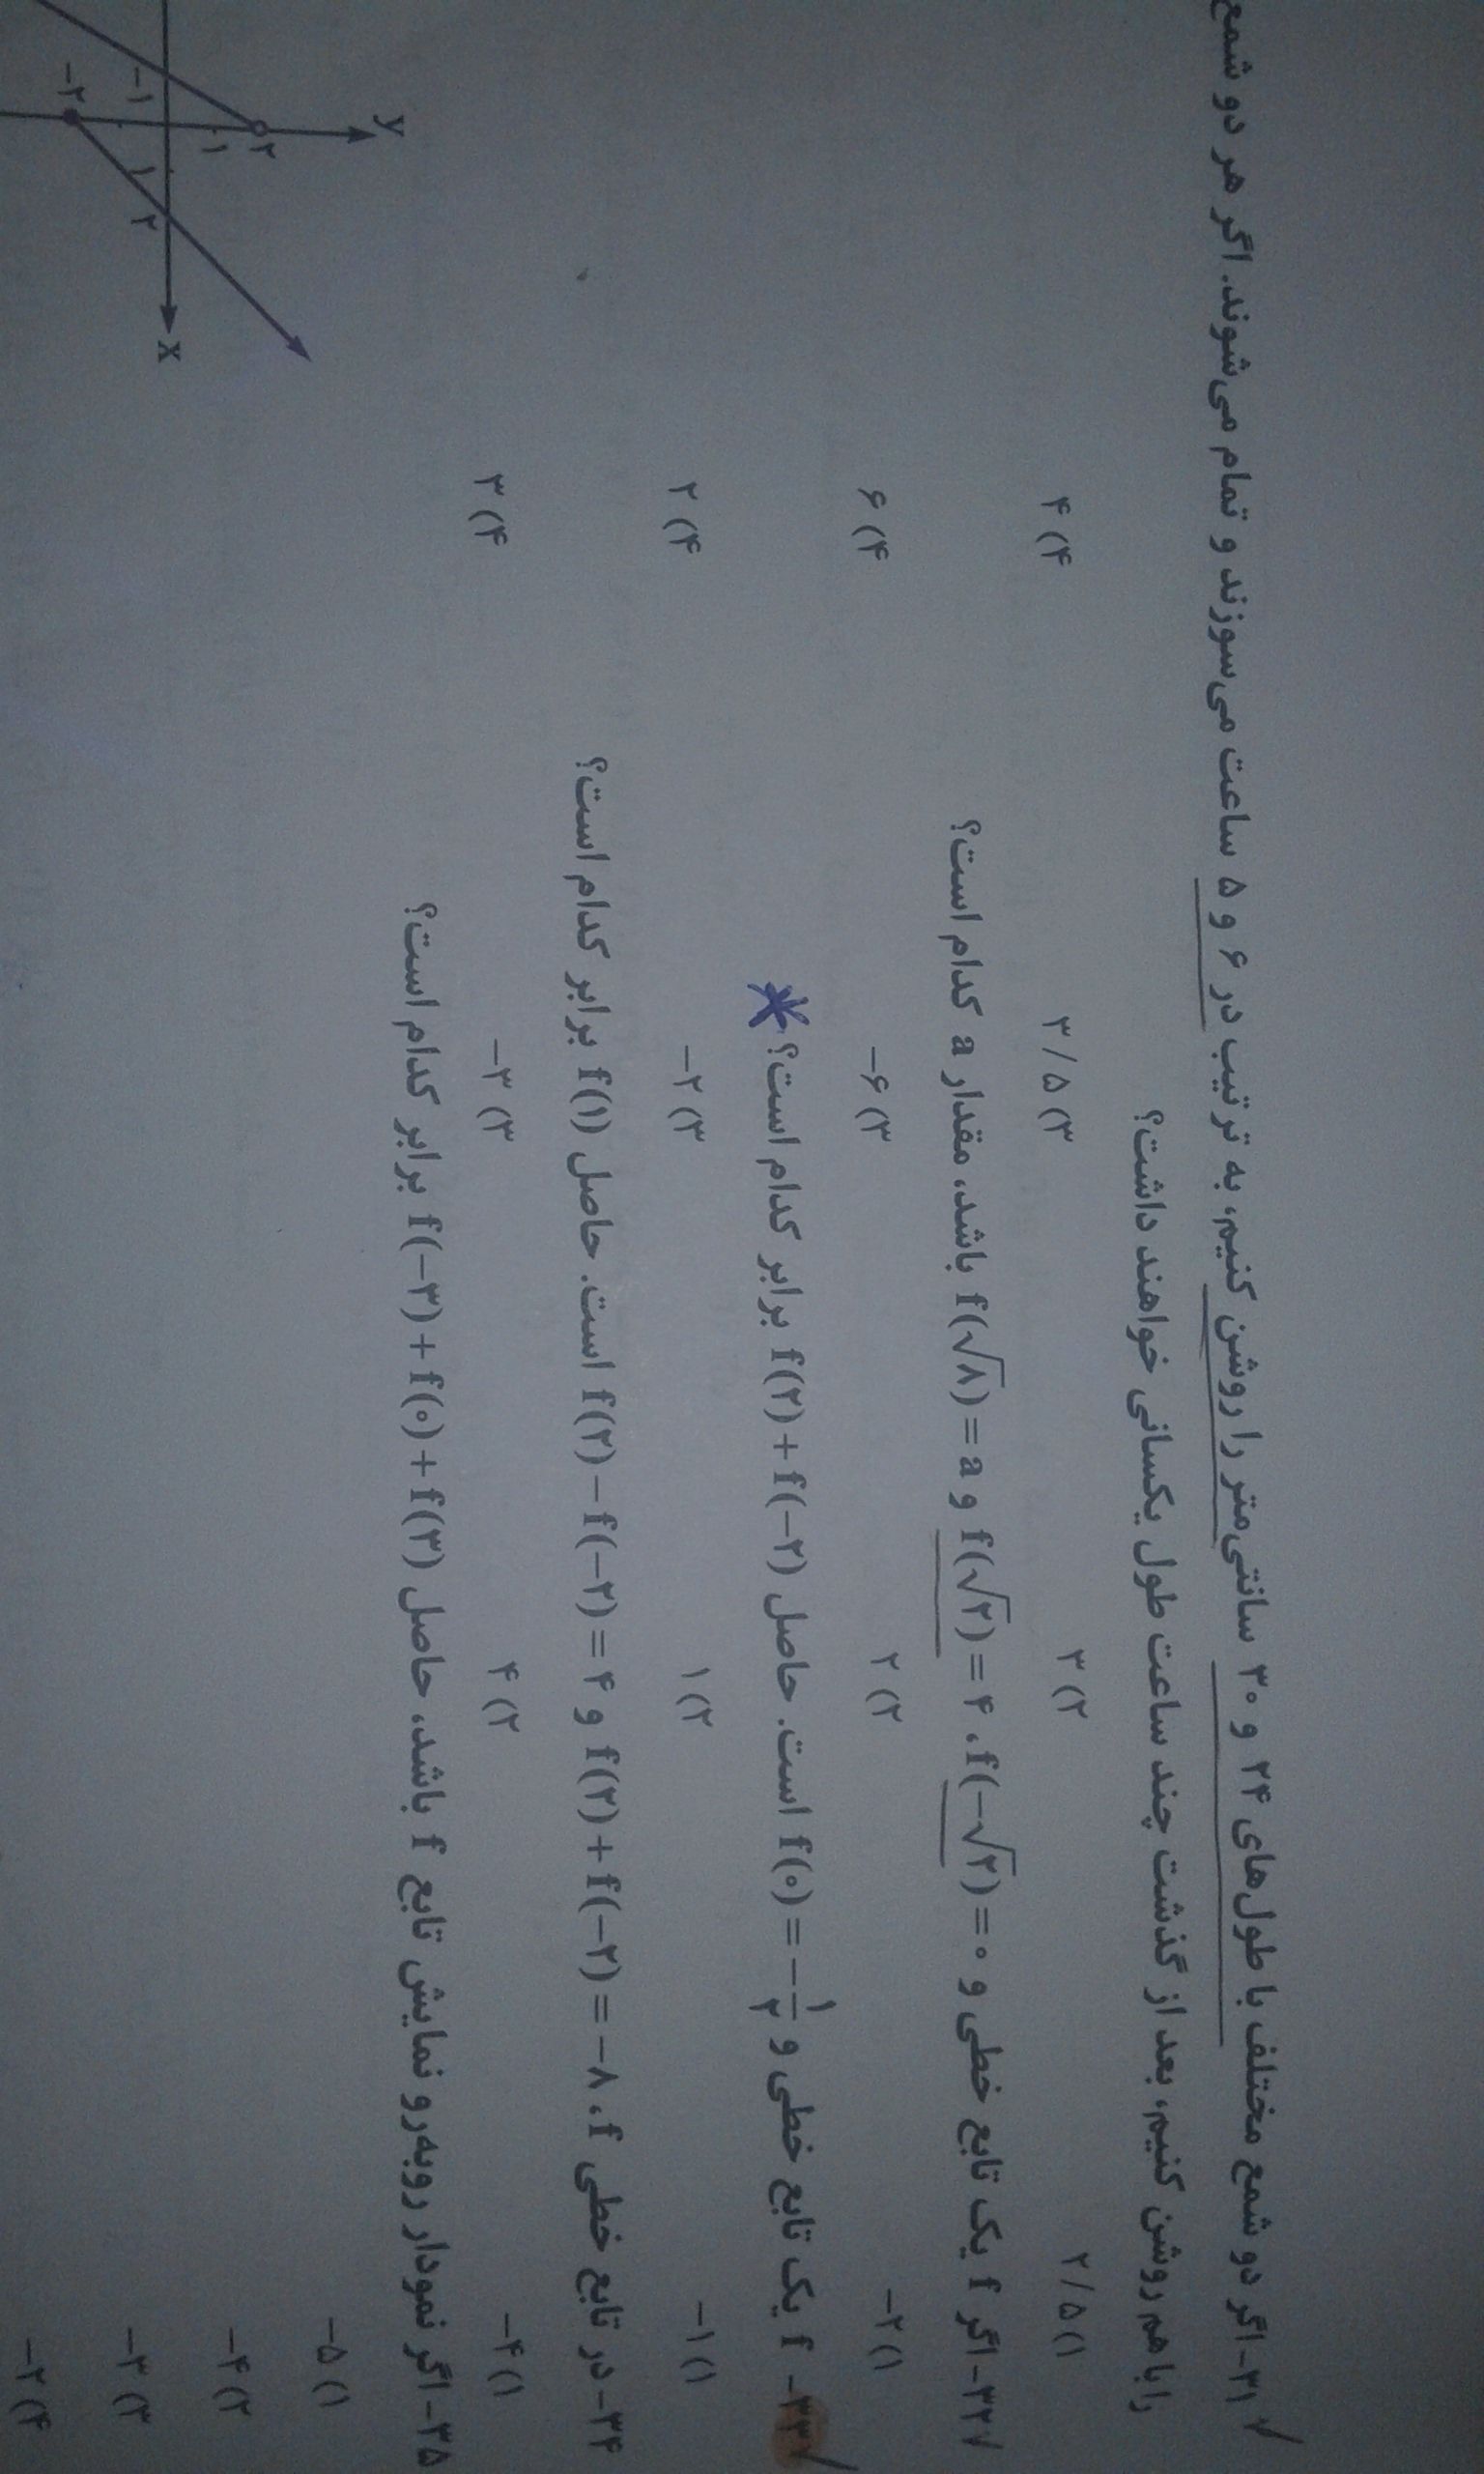 ۳۱- اگر دو شمع مختلف با طول‌های ۲۴ و ۳۰ سانتی‌متر را روشن کنیم، به ترتیب در ۶ و ۵ ساعت می‌سوزند و تمام می‌شوند. اگر هر دو شمع
را با هم روشن کنیم، بعد از گذشت چند ساعت طول یکسانی خواهند داشت؟
۱) ۲/۵ ۲) ۳ ۳) ۳/۵ ۴) ۴
۳۲- اگر f یک تابع خطی و f(-√۲) = ۰ ، f(√۲) = ۴ و f(√۸) = a باشد، مقدار a کدام است؟
۱) -۲ ۲) ۲ ۳) -۶ ۴) ۶
۳۳- f یک تابع خطی و f(۰) = -۱/۲ است. حاصل f(۲) + f(-۲) برابر کدام است؟
۱) -۱ ۲) ۱ ۳) -۲ ۴) ۲
۳۴- در تابع خطی f، f(۲) + f(-۲) = -۸ و f(۲) - f(-۲) = ۴ است. حاصل f(۱) برابر کدام است؟
۱) -۴ ۲) ۴ ۳) -۳ ۴) ۳
۳۵- اگر نمودار روبه‌رو نمایش تابع f باشد، حاصل f(-۳) + f(۰) + f(۳) برابر کدام است؟
۱) -۵
۲) -۴
۳) -۳
۴) -۲
y
۲
۱
-۱
۱
۲
x
-۲